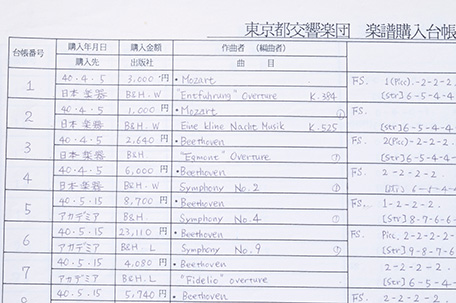 東京都交響楽団 楽譜購入台帳
台帳番号 購入年月日 購入金額 作曲者 (編曲者)
購入先 出版社 曲目
1 40・4・5 3,000 円 • Mozart FS. 1(Picc)-2-2-2.
日本楽器 B&H.W "Entführung" Overture K.384 [Str] 6-5-4-4
2 40・4・5 1,000 • Mozart ① FS.
日本楽器 B&H.W Eine kleine Nacht Musik K-525 [Str] 6-5-4-4
3 40・4・5 2,640 円 • Beethoven FS. 2(Picc)-2-2-2.
日本楽器 B&H "Egmont" Overture ① [Str] 6-5-4-4
4 40・4・5 6,000 • Beethoven FS. 2-2-2-2.
日本楽器 B&H.W Symphony No.2 ① 6-5-4-4
5 40.5.15 8,700 • Beethoven FS. 1-2-2-2.
アカデミア B&H. Symphony No.4 ① [Str] 8-7-6-6
6 40.5.15 23,110 • Beethoven FS. Picc. 2-2-2-
アカデミア B&H. L Symphony No.9 ① [Str] 9-8-7-6
7 40.5.15 4,080 • Beethoven 2-2-2-2.
アカデミア B&H.L "Fidelio" overture
40.5.15 5,740 • Beethoven FS. 2-2-2-2.